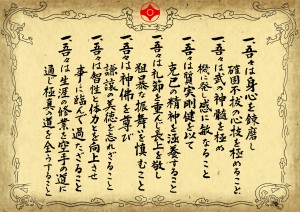 一、吾々は身心を錬磨し
確固不抜の心技を極めること
一、吾々は武の神髄を極め
機に発し感に敏なること
一、吾々は質実剛健を以て
克己の精神を涵養すること
一、吾々は礼節を重んじ長上を敬し
粗暴の振舞いを慎むこと
一、吾々は神佛を尊び
謙譲の美徳を忘れざること
一、吾々は智性と体力とを向上させ
事に臨んで過たざること
一、吾々は生涯の修業を空手の道に
通じ極真の道を全うすること